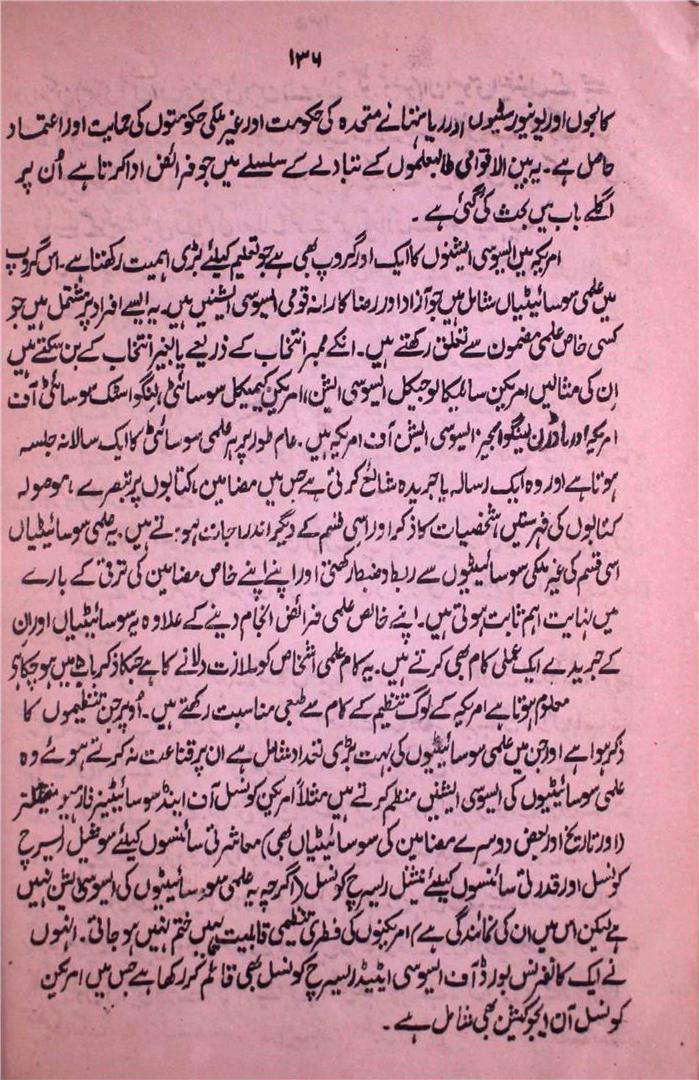 ۱۳۶
کالجوں اور یونیورسٹیوں اور ریاستہائے متحدہ کی حکومت اور غیر ملکی حکومتوں کی حمایت اور اعتماد
حاصل ہے۔ یہ بین الاقوامی طالبعلموں کے تبادلے کے سلسلے میں جو فرائض ادا کرتا ہے اُن پر
اگلے باب میں بحث کی گئی ہے۔
امریکہ میں ایسوسی ایشنوں کا ایک اور گروپ بھی ہے جو تعلیم کیلئے بڑی اہمیت رکھتا ہے۔ اس گروپ
میں علمی سوسائیٹیاں شامل ہیں جو آزاد اور رضاکارانہ قومی ایسوسی ایشنیں ہیں۔ یہ ایسے افراد پر مشتمل ہیں جو
کسی خاص علمی مضمون سے تعلق رکھتے ہیں۔ انکے ممبر انتخاب کے ذریعے یا بغیر انتخاب کے بن سکتے ہیں
اِن کی مثالیں امریکن سائیکالوجیکل ایسوسی ایشن، امریکن کیمیکل سوسائٹی، لنگواسٹک سوسائٹی آف
امریکہ اور ماڈرن لینگوایجز ایسوسی ایشن آف امریکہ ہیں۔ عام طور پر ہر علمی سوسائٹی کا ایک سالانہ جلسہ
ہوتا ہے اور وہ ایک رسالہ یا جریدہ شائع کرتی ہے جس میں مضامین، کتابوں پر تبصرے، موصولہ
کتابوں کی فہرستیں، شخصیات کا ذکر اور اسی قسم کے دیگر اندراجات ہوتے ہیں۔ یہ علمی سوسائیٹیاں
اسی قسم کی غیر ملکی سوسائیٹیوں سے ربط و ضبط رکھتی اور اپنے اپنے خاص مضامین کی ترقی کے بارے
میں نہایت اہم ثابت ہوتی ہیں۔ اپنے خالص علمی فرائض انجام دینے کے علاوہ یہ سوسائیٹیاں اور ان
کے جریدے ایک عملی کام بھی کرتے ہیں۔ یہ کام علمی اشخاص کو ملازمت دلانے کا ہے جسکا ذکر باب میں ہو چکا ہے
معلوم ہوتا ہے امریکہ کے لوگ تنظیم کے کام سے طبعی مناسبت رکھتے ہیں۔ اُوپر جن تنظیموں کا
ذکر ہوا ہے اور جن میں علمی سوسائیٹیوں کی بہت بڑی تعداد شامل ہے ان پر قناعت نہ کرتے ہوئے وہ
علمی سوسائیٹیوں کی ایسوسی ایشنیں منظم کرتے ہیں مثلاً امریکن کونسل آف اینڈ سوسائیٹیز فار ہیومینٹیز
(اور تاریخ اور بعض دوسرے مضامین کی سوسائیٹیاں بھی) معاشرتی سائنسوں کیلئے سوشیل ریسرچ
کونسل اور قدرتی سائنسوں کیلئے نیشنل ریسرچ کونسل (اگرچہ یہ علمی سوسائیٹیوں کی ایسوسی ایشن نہیں
ہے لیکن اس میں ان کی نمائندگی ہے) امریکنوں کی فطری تنظیمی قابلیت یہیں ختم نہیں ہو جاتی۔ انہوں
نے ایک کانفرنس بورڈ آف ایسوسی ایٹیڈ ریسرچ کونسل بھی قائم کر رکھا ہے جس میں امریکن
کونسل آن ایجوکیشن بھی شامل ہے۔